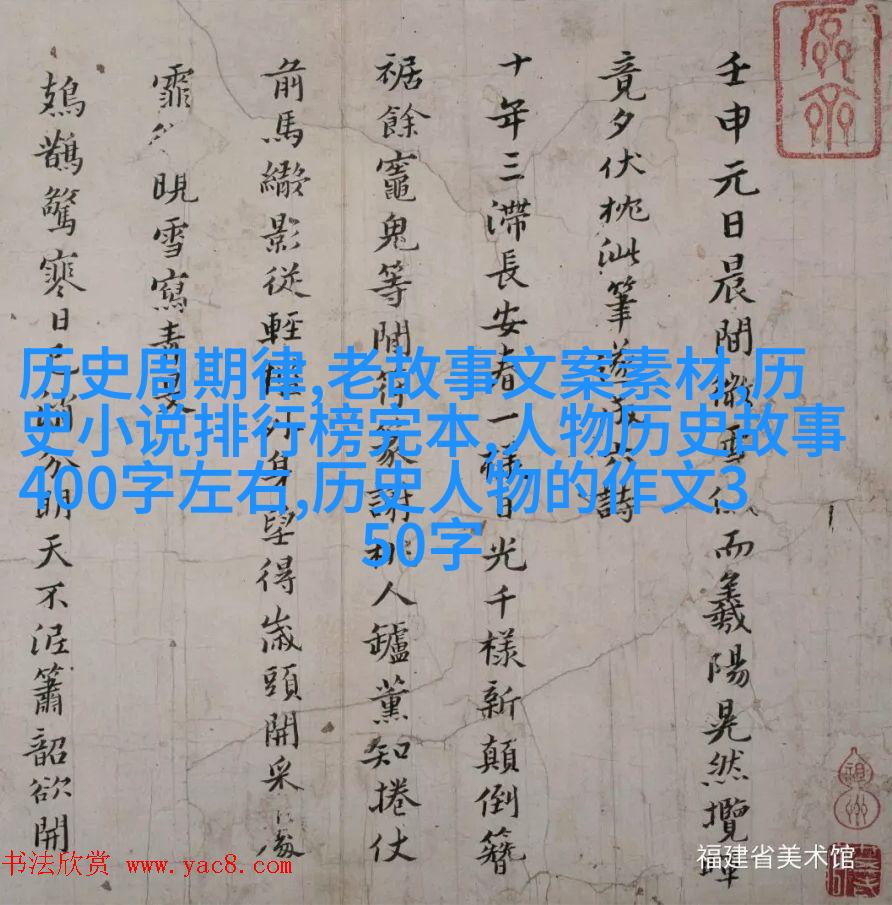 壬申元日晨間微雪俄而羲陽晃然攬
竟夕伏枕泚筆詩
十年三滯長安春一樣日光千樣新顛倒簪
裾餘竈鬼等閒符籙謝桃人鑪薰知捲仗
前馬繖影從輕身望得歲頭開采
霏晛雪寫青旻
鳷鵲驚寒日已分明天不泥簫韶欲開
历史周期律,老故事文案素材,历
史小说排行榜完本,人物历史故事
400字左右,历史人物的作文3
50字
书法欣赏 www.yac8.com
福建省美术馆